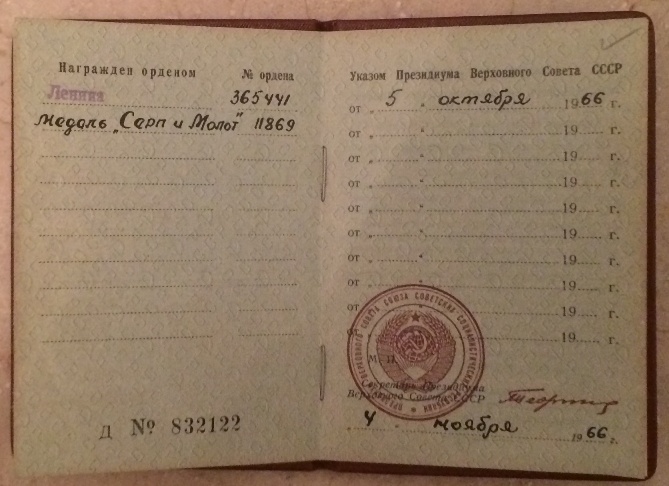 Награжден орденом № ордена
Ленина 365441
Медаль „Серп и Молот" 11869
Д № 832122
Указом Президиума Верховного Совета СССР
от „ 5 " октября 1966 г.
от „ " 19 г.
от „ " 19 г.
от „ " 19 г.
от „ " 19 г.
от „ " 19 г.
от „ " 19 г.
от „ " 19 г.
от „ " 19 г.
от „ " 19 г.
М. П.
Секретарь Президиума
Верховного Совета СССР
„ 4 " ноября 1966 г.